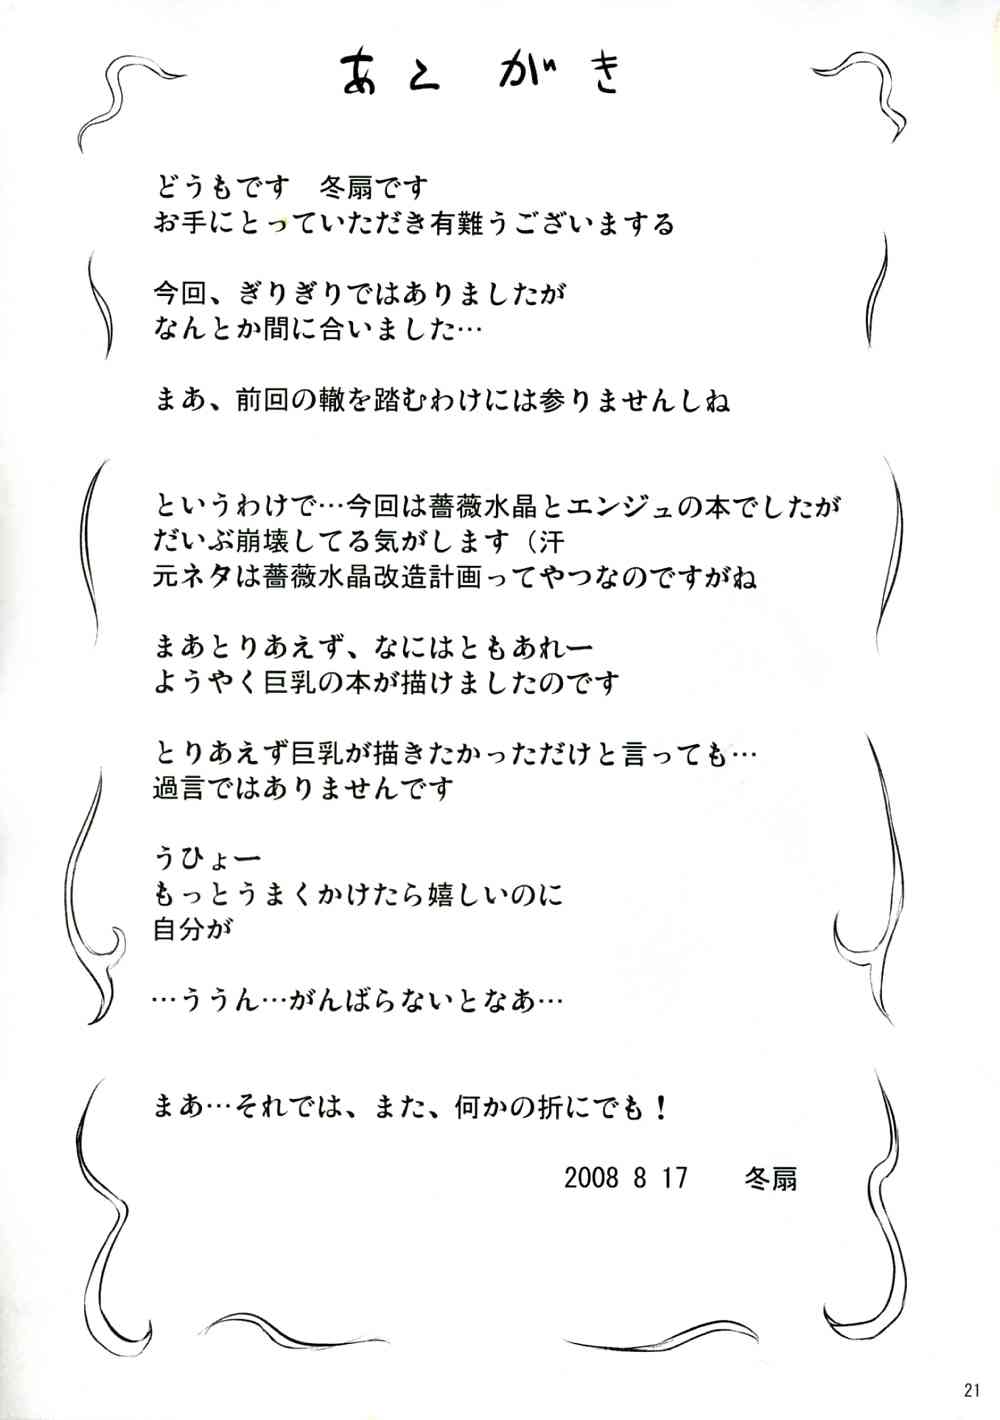 あとがき
どうもです　冬扇です
お手にとっていただき有難うございまする
今回、ぎりぎりではありましたが
なんとか間に合いました…
まあ、前回の轍を踏むわけには参りませんしね
というわけで…今回は薔薇水晶とエンジュの本でしたが
だいぶ崩壊してる気がします（汗
元ネタは薔薇水晶改造計画ってやつなのですがね
まあとりあえず、なにはともあれー
ようやく巨乳の本が描けましたのです
とりあえず巨乳が描きたかっただけと言っても…
過言ではありませんです
うひょー
もっとうまくかけたら嬉しいのに
自分が
…ううん…がんばらないとなあ…
まあ…それでは、また、何かの折にでも！
2008 8 17　冬扇
21